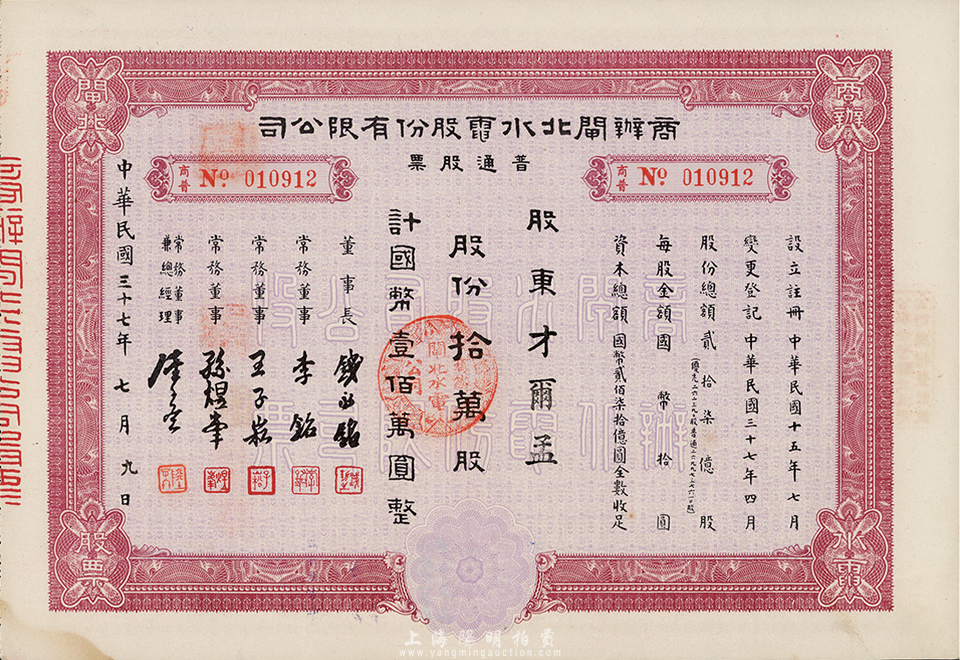 商辦閘北水電股份有限公司
普通股票
商普 № 010912
商普 № 010912
設立註冊 中華民國十五年七月
變更登記 中華民國三十七年四月
股份總額貳拾柒億股
每股金額國幣拾圓
資本總額 國幣貳佰柒拾億圓全數收足
股東才爾孟
股份拾萬股
計國幣壹佰萬圓整
董事長
常務董事 李銘
常務董事 王子崧
常務董事 孫煜峯
常務董事兼總經理
中華民國三十七年七月九日
商辦
閘北
水電
股票
商辦閘北水電股份有限公司股票
上海陽明拍賣
www.yangmingauction.com